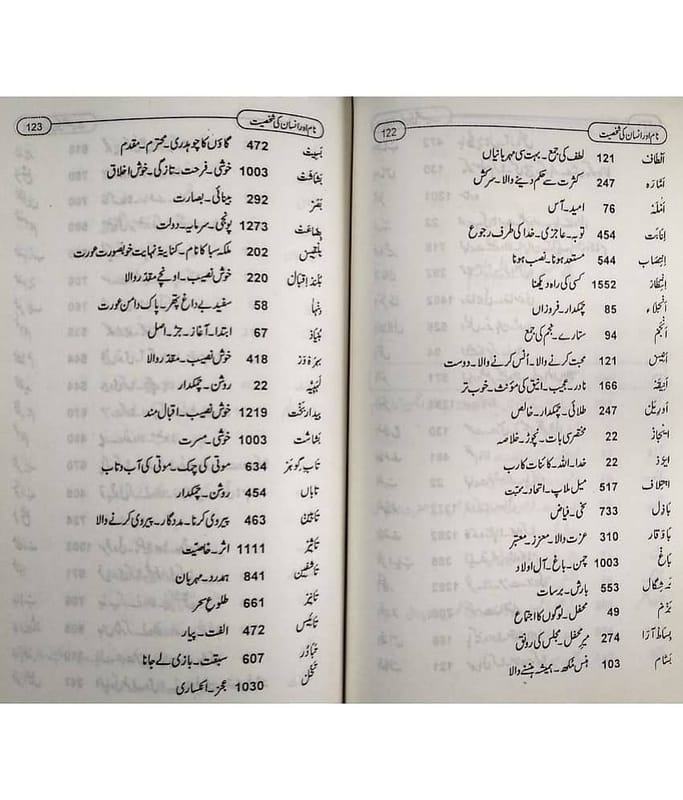 نام اور انسان کی شخصیت 122
الطاف 121 لطف کی جمع۔ بہت سی مہربانیاں
امارہ 247 کثرت سے حکم دینے والا۔ سرکش
76 امید۔ آس
انابت 454 توبہ۔ عاجزی۔ خدا کی طرف رجوع
انتصاب 544 مستعد ہونا۔ نصب ہونا
انتظار 1552 کسی کی راہ دیکھنا
انجلاء 85 چمکدار۔ فروزاں
انجم 94 ستارے۔ نجم کی جمع
انیس 121 محبت کرنے والا۔ انس کرنے والا۔ دوست
انیقہ 166 نادر۔ عجیب۔ انیق کی مؤنث۔ خوب تر
247 طلائی۔ چمکدار۔ خالص
22 مختصر سی بات۔ نچوڑ۔ خلاصہ
ایزد 22 خدا۔ اللہ۔ کائنات کا رب
ایتلاف 517 میل ملاپ۔ اتحاد۔ محبت
باذل 733 سخی۔ فیاض
باوقار 310 عزت والا۔ معزز۔ معتبر
باغ 1003 چمن۔ باغ۔ آل اولاد
برشگال 553 بارش۔ برسات
بزم 49 محفل۔ لوگوں کا اجتماع
بساط آرا 274 میر محفل۔ مجلس کی رونق
بسام 103 ہنس مکھ۔ ہمیشہ ہنسنے والا
نام اور انسان کی شخصیت 123
472 گاؤں کا چوہدری۔ محترم۔ مقدم
بشاشت 1003 خوشی۔ فرحت۔ تازگی۔ خوش اخلاق
بصر 292 بینائی۔ بصارت
بضاعت 1273 پونجی۔ سرمایہ۔ دولت
بلقیس 202 ملکہ سبا کا نام۔ کنایۃ نہایت خوبصورت عورت
بلند اقبال 220 خوش نصیب۔ اونچے مقدر والا
58 سفید بے داغ پتھر۔ پاک دامن عورت
بنیاد 67 ابتدا۔ آغاز۔ جڑ۔ اصل
بہرہ ور 418 خوش نصیب۔ مقدر والا
22 روشن۔ چمکدار
بیدار بخت 1219 خوش نصیب۔ اقبال مند
بشاشت 1003 خوشی۔ مسرت
تاب گوہر 634 موتی کی چمک۔ موتی کی آب و تاب
تاباں 454 روشن۔ چمکدار
463 پیروی کرنا۔ مددگار۔ پیروی کرنے والا
تاثیر 1111 اثر۔ خاصیت
تاشفین 841 ہمدرد۔ مہربان
661 طلوع سحر
472 الفت۔ پیار
607 سبقت۔ بازی لے جانا
1030 عجز۔ انکساری